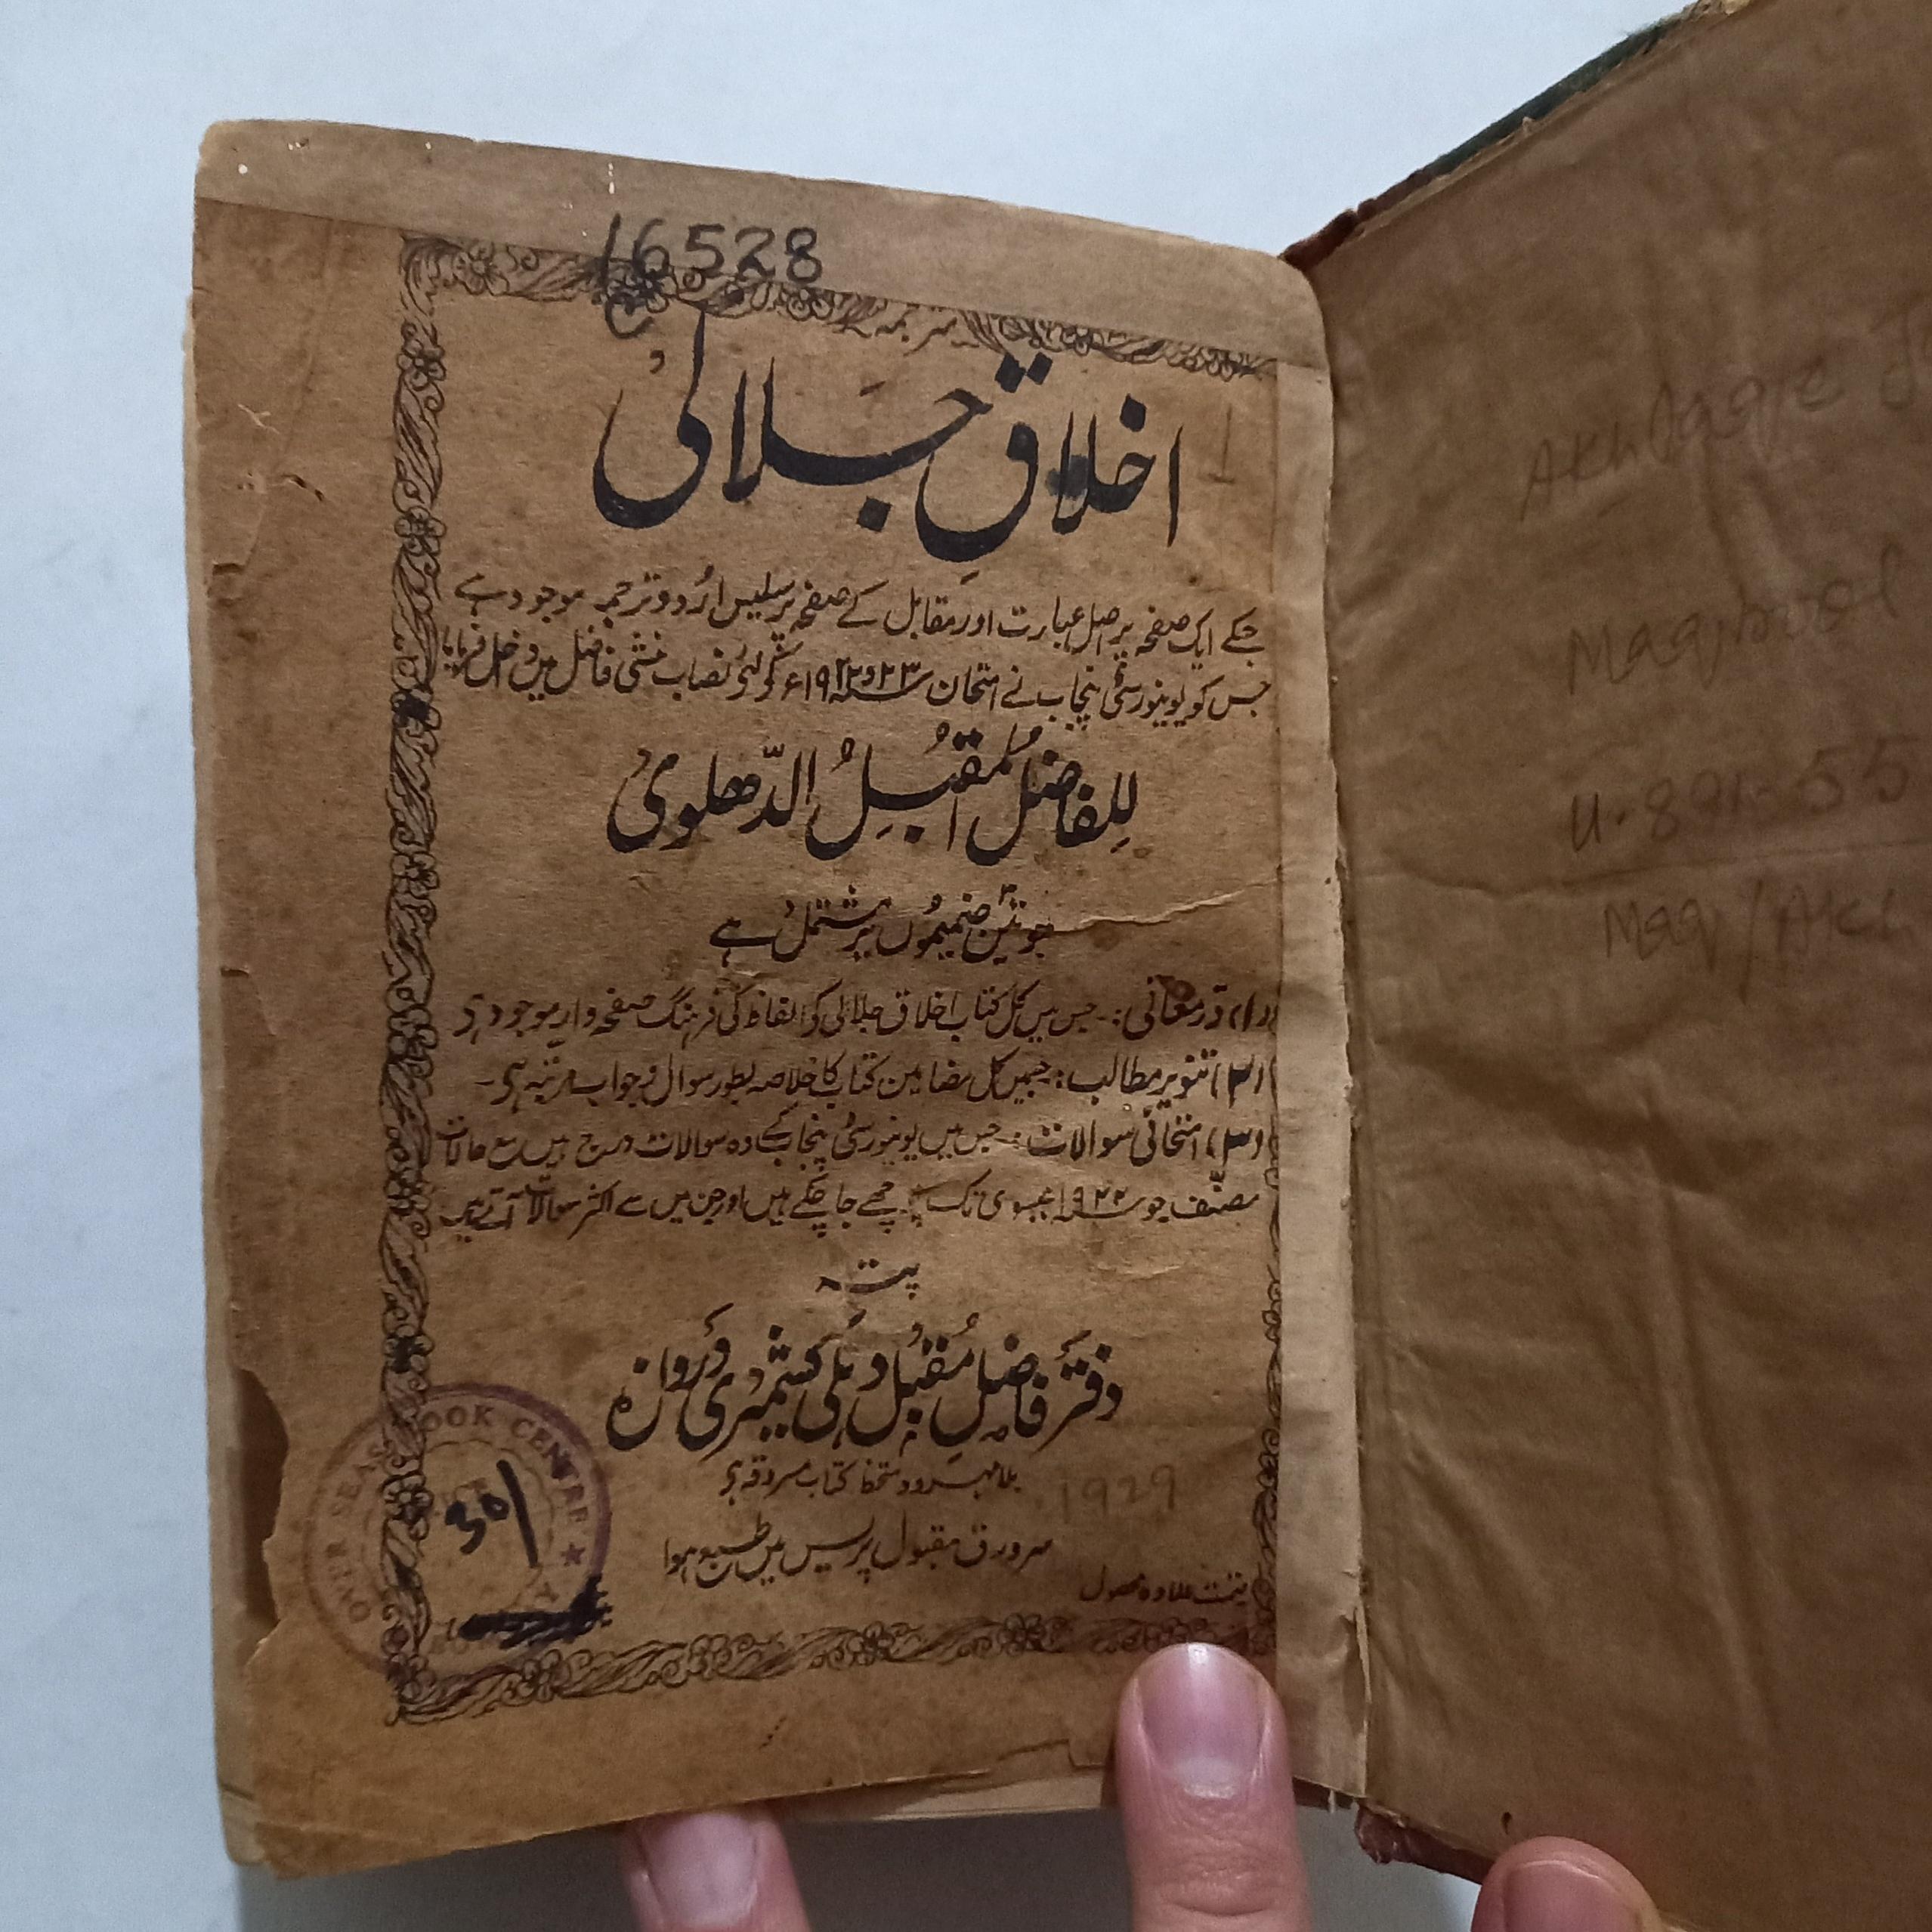 16528
ترجمہ
اخلاقِ جَلالی
1
جسکے ایک صفحہ پر اصل عبارت اور مقابل کے صفحہ پر سلیس اُردو ترجمہ موجود ہے
جس کو یونیورسٹی پنجاب نے امتحان ۲۳و۱۹۲۲ء کو لئے نصاب منشی فاضل میں داخل فرمایا
لِلفاضلِ المُقبِلُ الدّھلوی
جو تین ضمیموں پر مشتمل ہے
(۱) دُرمعانی :- جس میں کل کتاب اخلاق جلالی کو الفاظ کی فرہنگ صفحہ وار موجود ہی
(۲) تنویر مطالب :- جسمیں کل مضامین کتاب کا خلاصہ بطور سوال و جواب مرتبہ ہی۔
(۳) امتحانی سوالات :- جس میں یونیورسٹی پنجاب کے وہ سوالات درج ہیں مع حالات
مصنّف جو ۱۹۲۲ عیسوی تک پوچھے جا چکے ہیں اور جن میں سے اکثر سوالات آتے ہیں
پتہ
دفتر فاضل مُقبل دہلی کشمیری دروازہ
بلا مہر و دستخط کتاب مسروقہ ہی
1929
سرورق مقبول پریس میں طبع ہوا
قیمت علاوہ محصول
OVER SEAS BOOK CENTRE
30/
Akhlaqe J
Maqbool
U-891-55
Maq/Akh